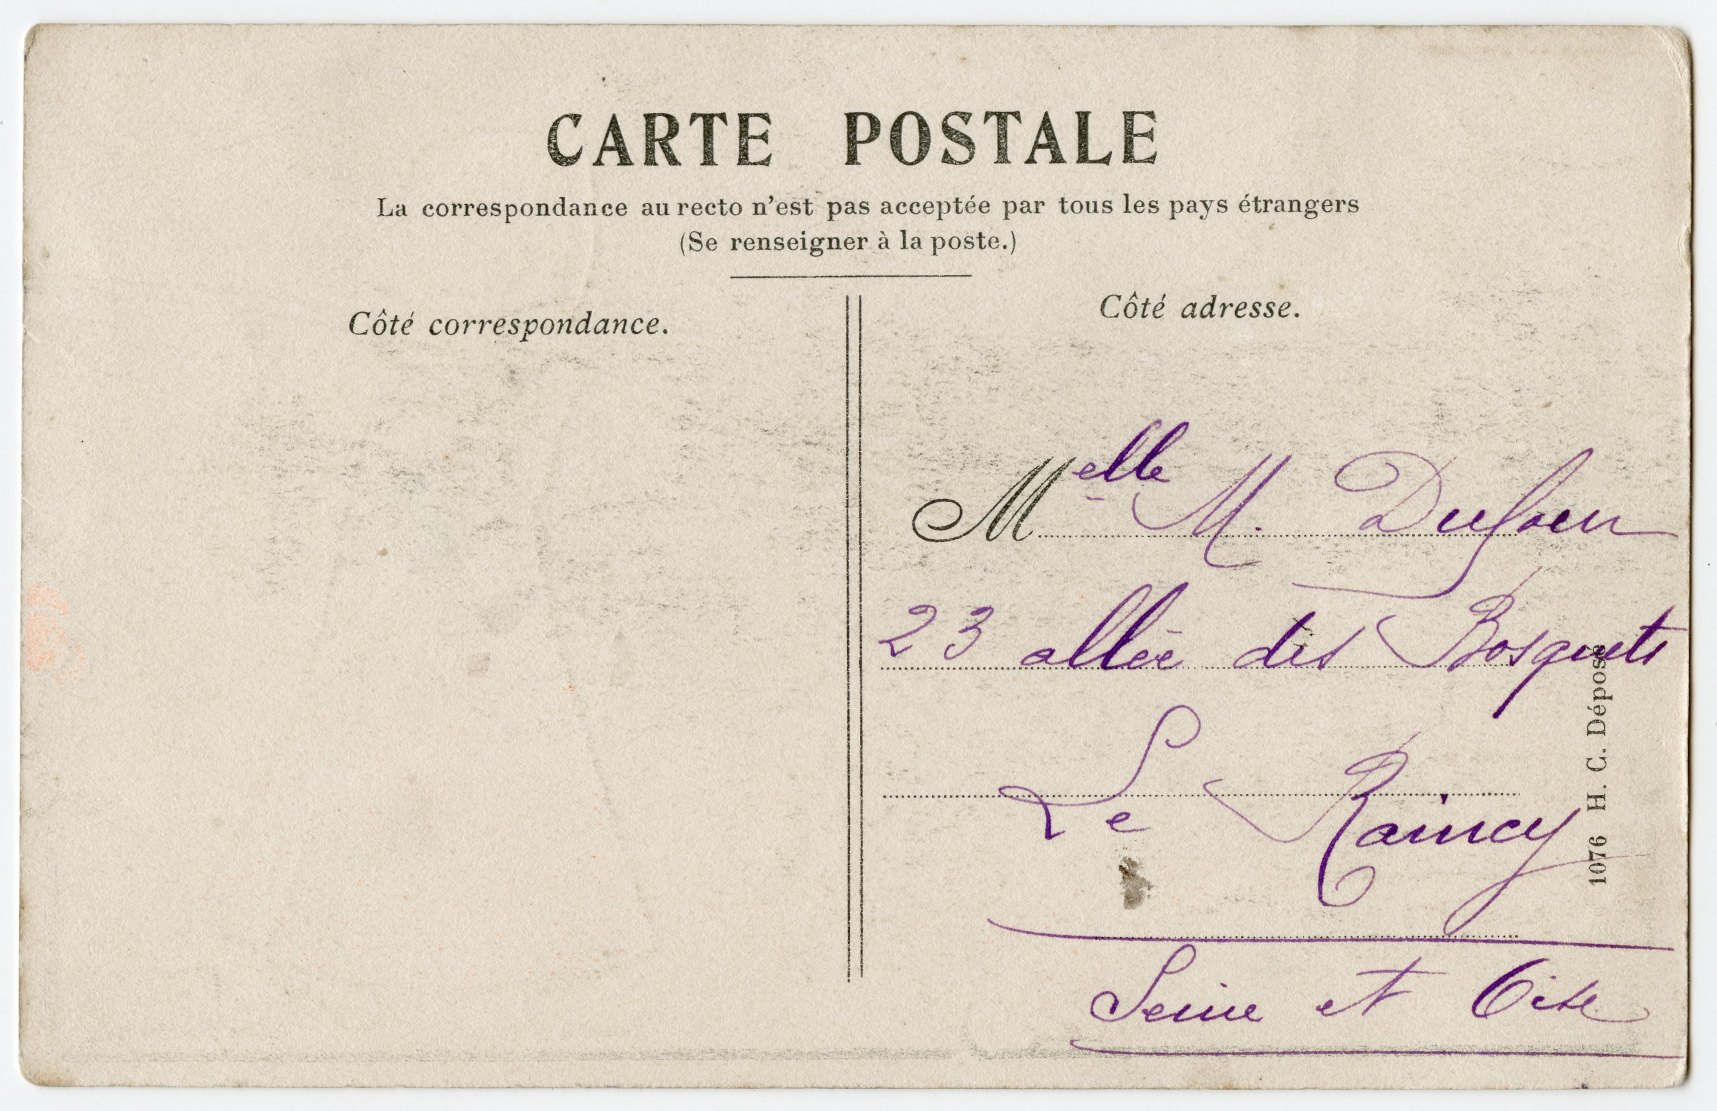 CARTE POSTALE
La correspondance au recto n'est pas acceptée par tous les pays étrangers
(Se renseigner à la poste.)
Côté correspondance.
Côté adresse.
Melle M.
23 allée des Bosquets
Le Raincy
Seine et Oise
1076 H. C. Déposé